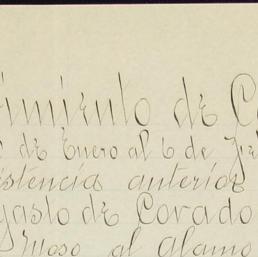 imiento de C
de Enero al 6 de Fe
istencia anterior
gasto de Corado
Muso al alamo